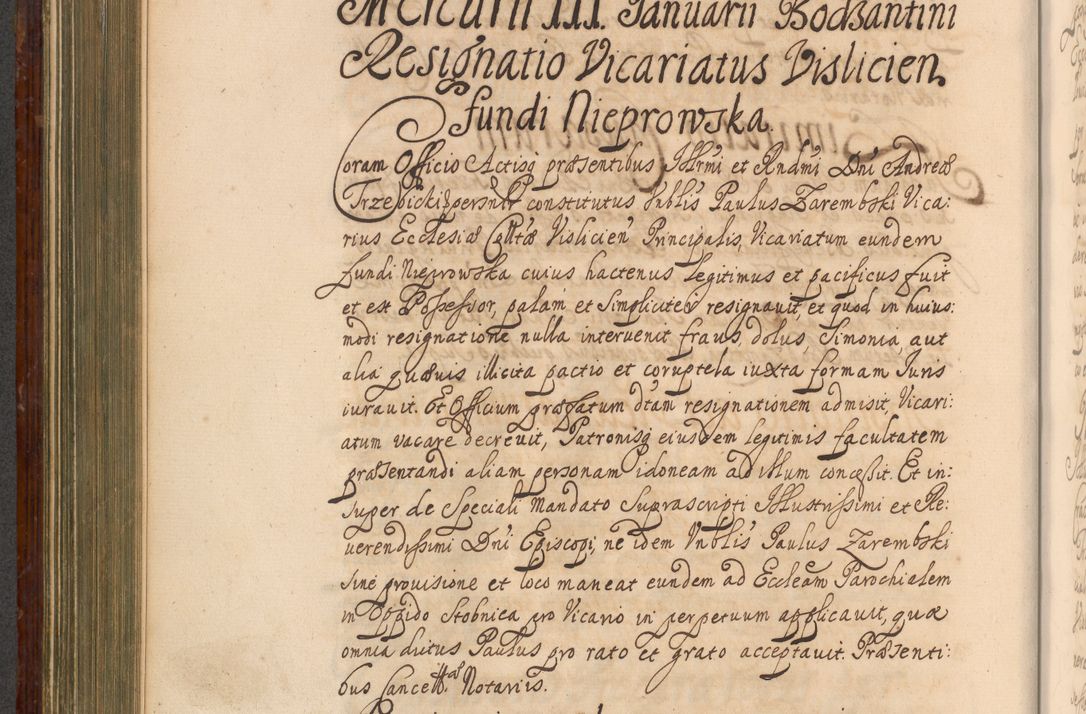 Mercurii III. Januarii Bodzantini
Resignatio Vicariatus Vislicien
fundi Nieprowska
Coram Officio Actisq præsentibus Illrmi et Rndmi Dni Andreæ
Trzebicki personlr constitutus Vnblis Paulus Zarembski Vica:
rius Ecclesiæ Colltæ Vislicien Principalis, Vicariatum eundem
fundi Nieprowska cuius hactenus legitimus et pacificus fuit
et est Possessor, palam et simpliciter resignauit, et quod in huius:
modi resignatione nulla interuenit fraus, dolus, Simonia, aut
alia quæuis illicita pactio et coruptela iuxta formam Juris
iurauit. Et Officium præfatum dtam resignationem admisit, Vicari:
atum vacare decreuit, Patronisq eiusdem legitimis facultatem
præsentandi aliam personam idoneam ad illum concessit. Et in:
super de speciali Mandato Suprascripti Illustrissimi et Re:
uerendissimi Dni Episcopi, ne idem Vnblis Paulus Zarembski
sine prouisione et loco maneat eundem ad Eccleam Parochialem
in Oppido Stobnica pro Vicario in perpetuum applicauit, quæ
omnia dictus Paulus pro rato et grato acceptauit. Præsenti:
bus Cancellæ Notariis.